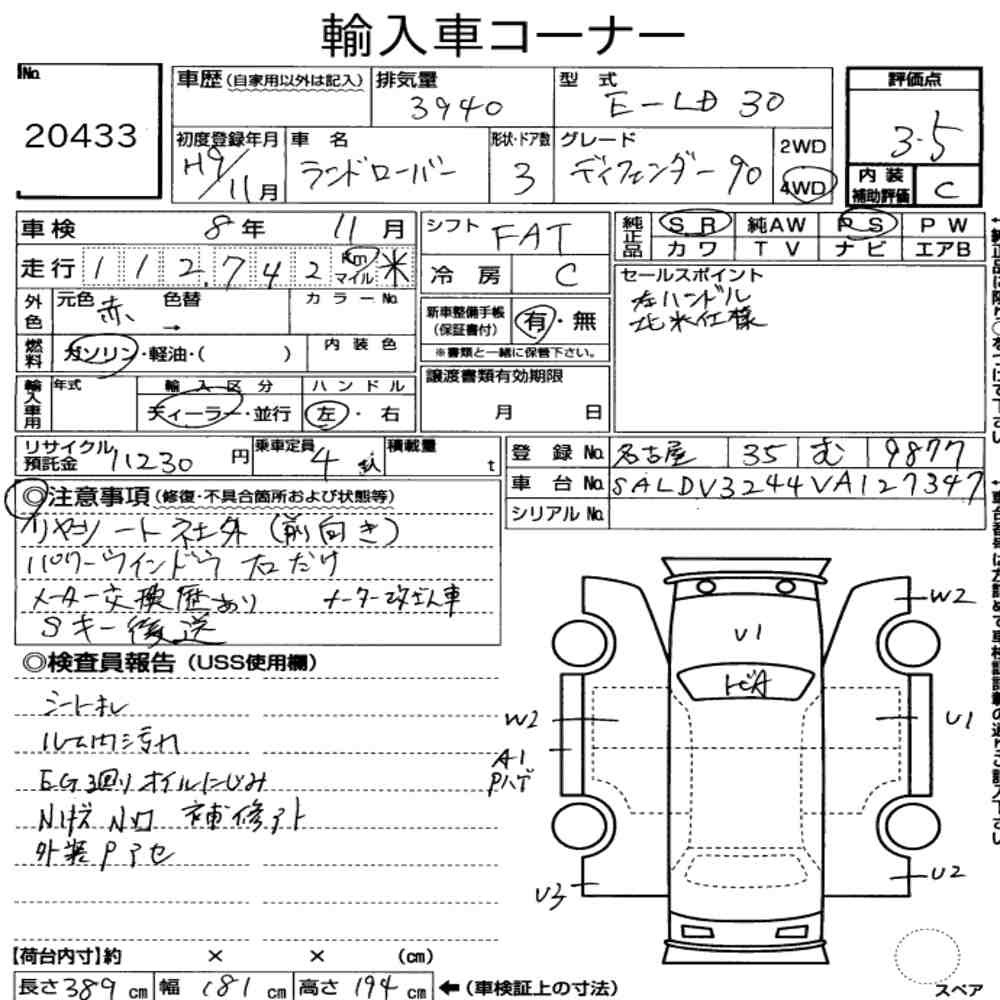 輸入車コーナー
No. 20433
車歴(自家用以外は記入)
排気量 3940
型式 E-LD 30
評価点 3.5
初度登録年月 H9/11月
車名 ランドローバー
形状・ドア数 3
グレード ディフェンダー90
2WD
4WD
内装補助評価 C
車検 8年 11月
シフト FAT
純正品 SR 純AW PS PW
カワ TV ナビ エアB
走行 112,742 km マイル ※
冷房 C
セールスポイント
左ハンドル
北米仕様
外色 元色 赤 色替 → カラーNo.
新車整備手帳(保証書付) 有・無
※書類と一緒に保管下さい。
燃料 ガソリン・軽油・( ) 内装色
輸入車用 年式 輸入区分 ハンドル
ディーラー・並行 左・右
譲渡書類有効期限
月 日
リサイクル預託金 11230円
乗車定員 4人
積載量 t
登録No. 名古屋 35 む 9877
車台No. SALDV3244VA127347
シリアルNo.
◎注意事項(修復・不具合箇所および状態等)
リヤシート社外(前向き)
パワーウインドウ 左右だけ
メーター交換歴あり メーター改ざん車
Sキー後送
◎検査員報告(USS使用欄)
シートキレ
ルーム内汚れ
EG廻りオイルにじみ
補修アト
外装Pアセ
W2
U1
トビA
W2
U1
A1
Pハゲ
U3
U2
スペア
【荷台内寸】約 × × (cm)
長さ389cm 幅181cm 高さ194cm ←(車検証上の寸法)